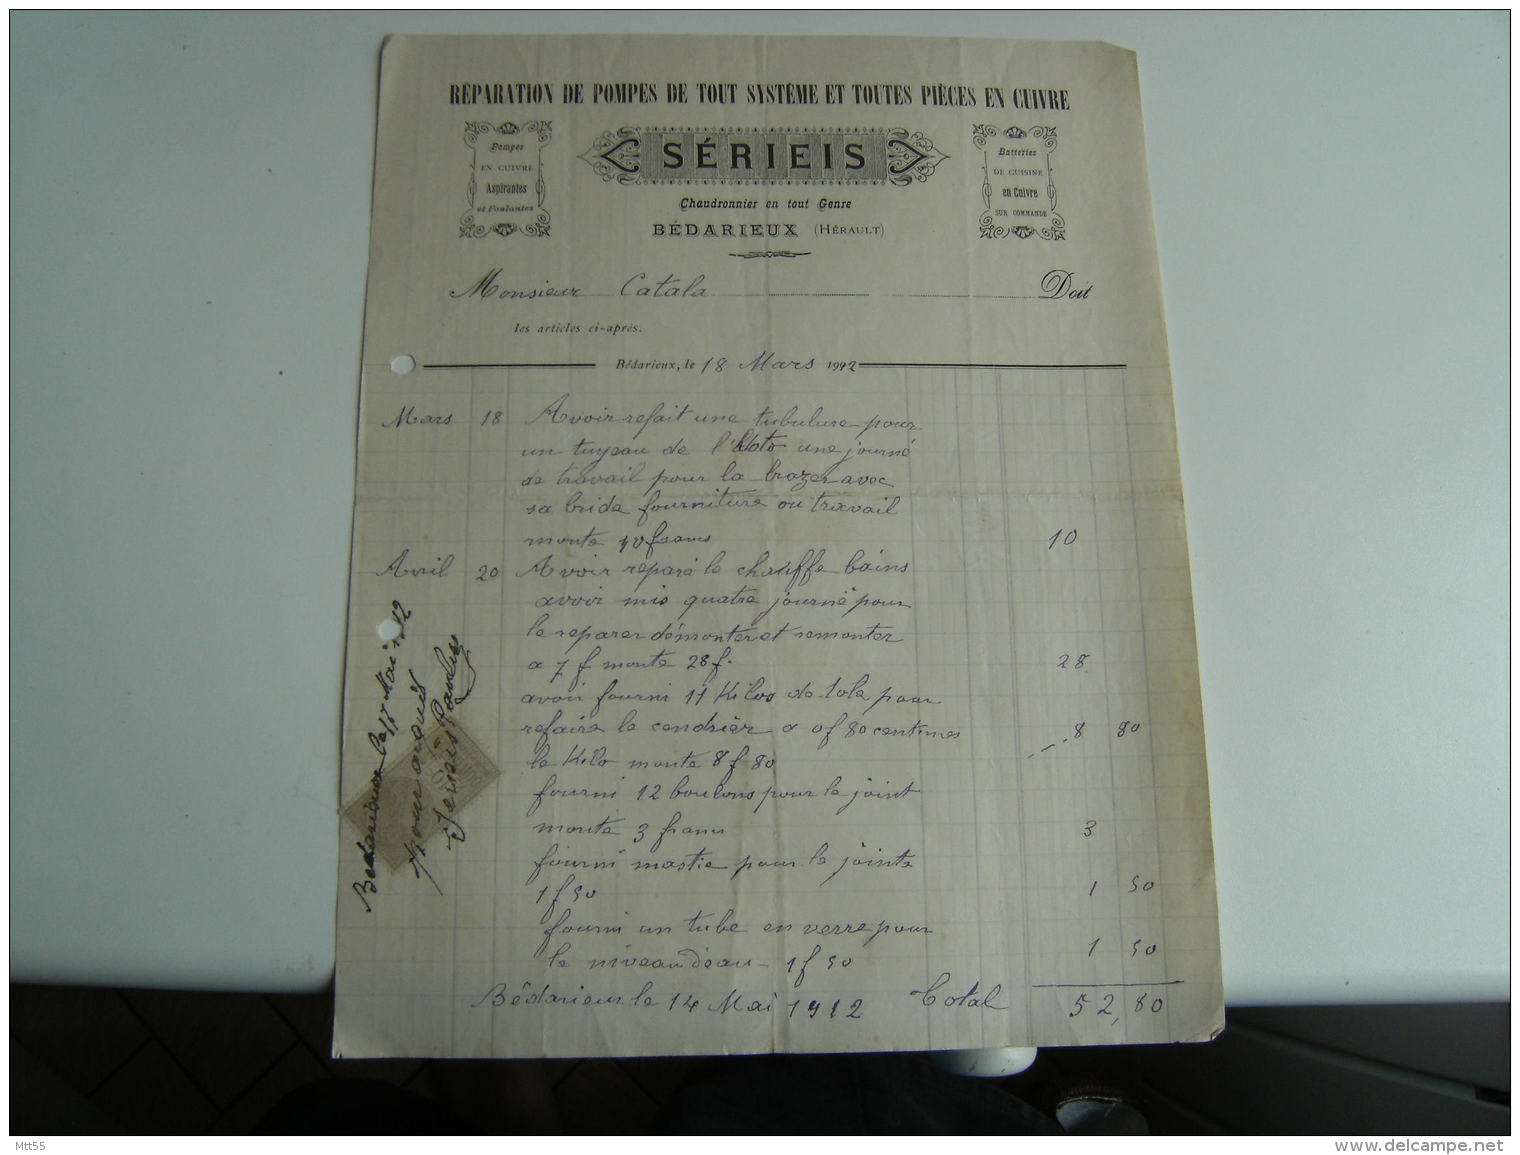 RÉPARATION DE POMPES DE TOUT SYSTÈME ET TOUTES PIÈCES EN CUIVRE
Pompes
EN CUIVRE
Aspirantes
et Foulantes
SÉRIEIS
Batteries
DE CUISINE
en Cuivre
SUR COMMANDE
Chaudronnier en tout Genre
BÉDARIEUX (HÉRAULT)
Monsieur Catala Doit
les articles ci-après.
Bédarieux, le 18 Mars 1912
Mars 18 Avoir refait une tubulure pour
un tuyeau de une journé
de travail pour la brazer avec
sa bride fourniture ou travail
monte 10 francs 10
Avril 20 Avoir reparé le chauffe bains
avoir mis quatre journé pour
le reparer démonter et remonter
a 7 f monte 28 f. 28
avoir fourni 11 Kilos de tole pour
refaire le cendrièr a 0f 80 centimes 8 80
le Kilo monte 8 f 80
fourni 12 boulons pour le joint
monte 3 francs 3
fourni mastic pour le jointe
1 f 50 1 50
fourni un tube en verre pour
le niveau déau 1 f 50 1 50
Bédarieux le 14 Mai 1912 Total 52,80
Bédarieux le 17 Mai 1912
Pour acquit
Serieis
Mtt55
www.delcampe.net